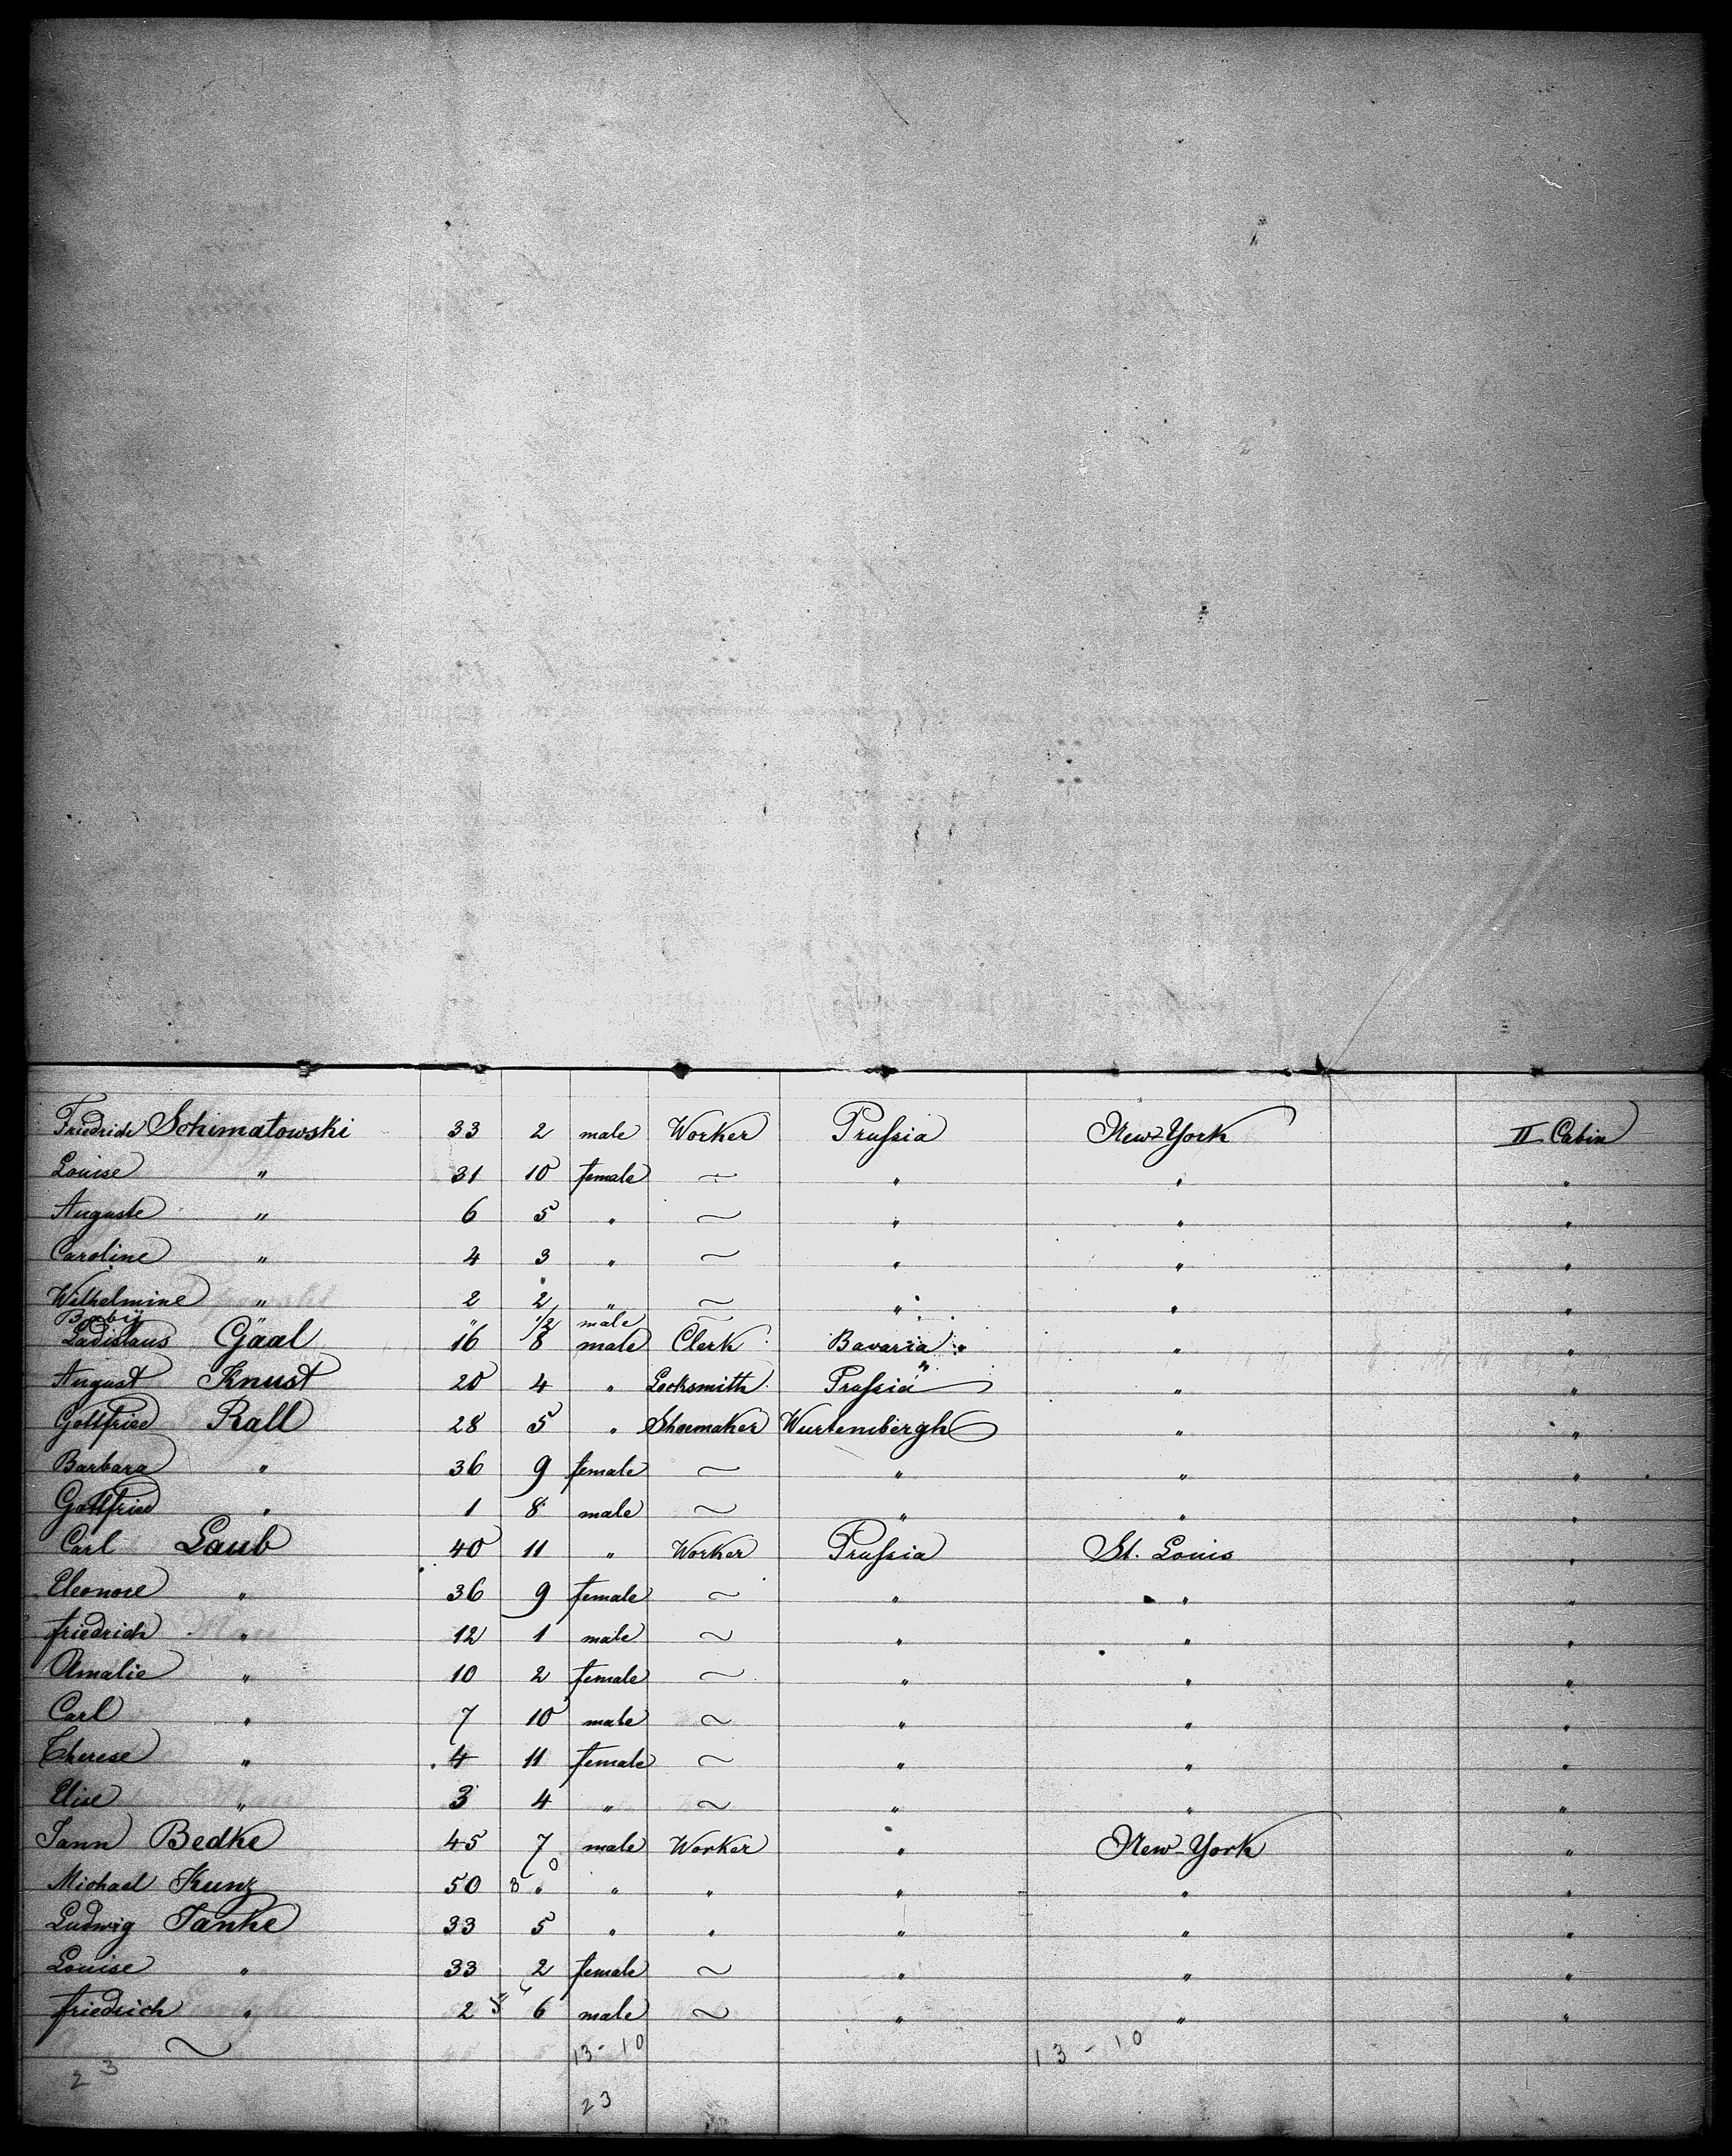 Friedrich Schimatowski 33 2 male Worker Prussia New-York II Cabin
Louise " 31 10 female ~ " " "
Auguste " 6 5 " ~ " " "
Caroline " 4 3 " ~ " " "
Wilhelmine " 2 2 " ~ " " "
Baby " 1/2 male ~
Ladislaus Gäal 16 8 male Clerk Bavaria " "
August Knust 20 4 " Locksmith Prussia " "
Gottfried Rall 28 5 " Shoemaker Wurtembergh " "
Barbara " 36 9 female ~ " " "
Gottfried " 1 8 male ~ " " "
Carl Laub 40 11 " Worker Prussia St. Louis "
Eleonore " 36 9 female ~ " " "
friedrich " 12 1 male ~ " " "
Amalie " 10 2 female ~ " " "
Carl " 7 10 male ~ " " "
Therese " 4 11 female ~ " " "
Elise " 3 4 " ~ " " "
Jann Bedke 45 7 male Worker " New-York "
Michael Kunz 50 " " " " " "
Ludwig Janke 33 5 " " " " "
Louise " 33 2 female ~ " " "
friedrich " 2 6 male ~ " " "
~ 13-10 13-10
23 23